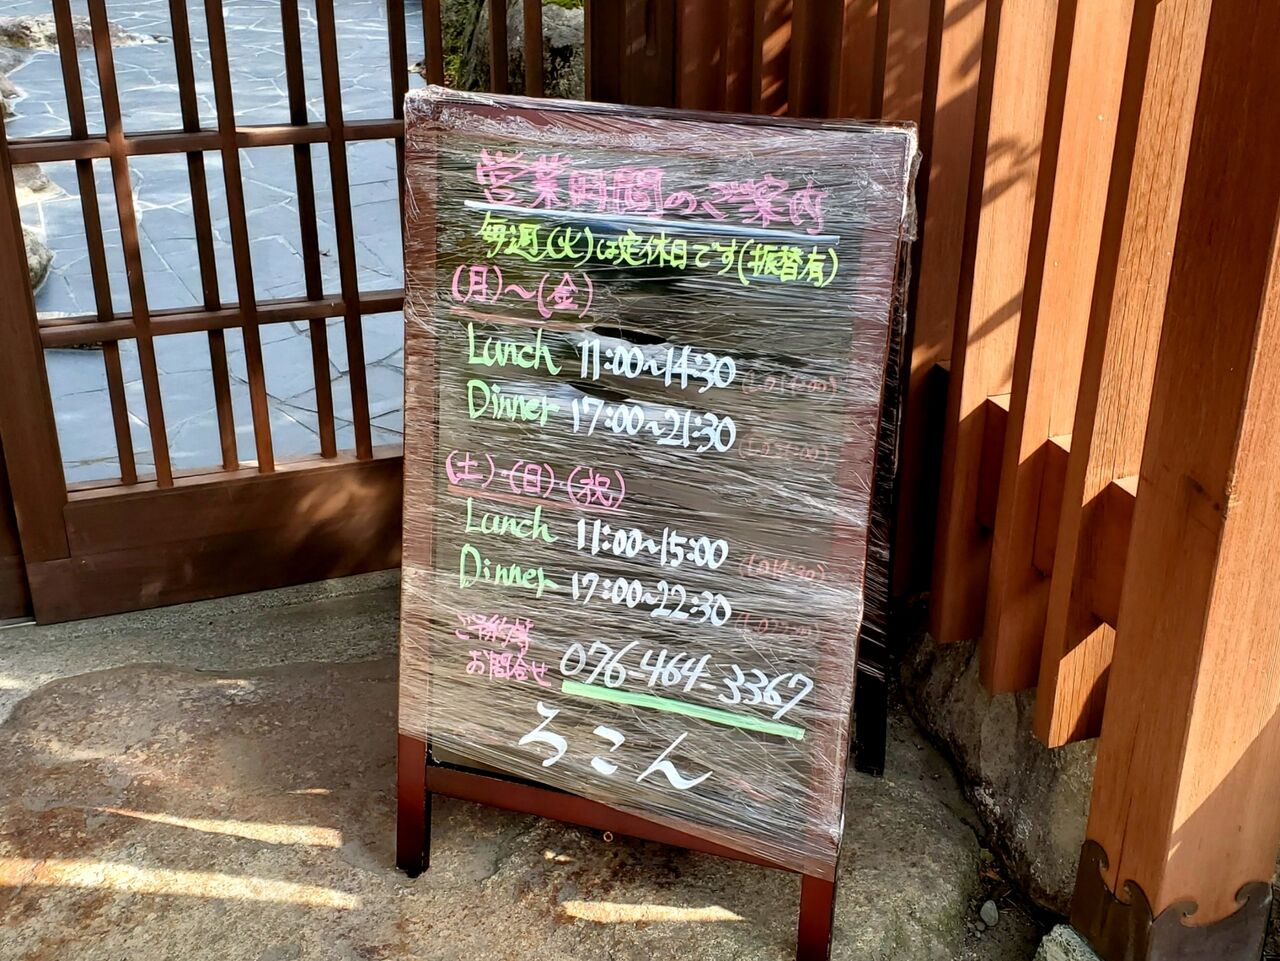 営業時間のご案内
毎週(火)は定休日です(振替有)
(月)～(金)
Lunch 11:00~14:30 (L.O14:00)
Dinner 17:00~21:30 (L.O21:00)
(土)・(日)・(祝)
Lunch 11:00~15:00 (L.O14:30)
Dinner 17:00~22:30
ご予約等
お問合せ 076-464-3367
ろこん